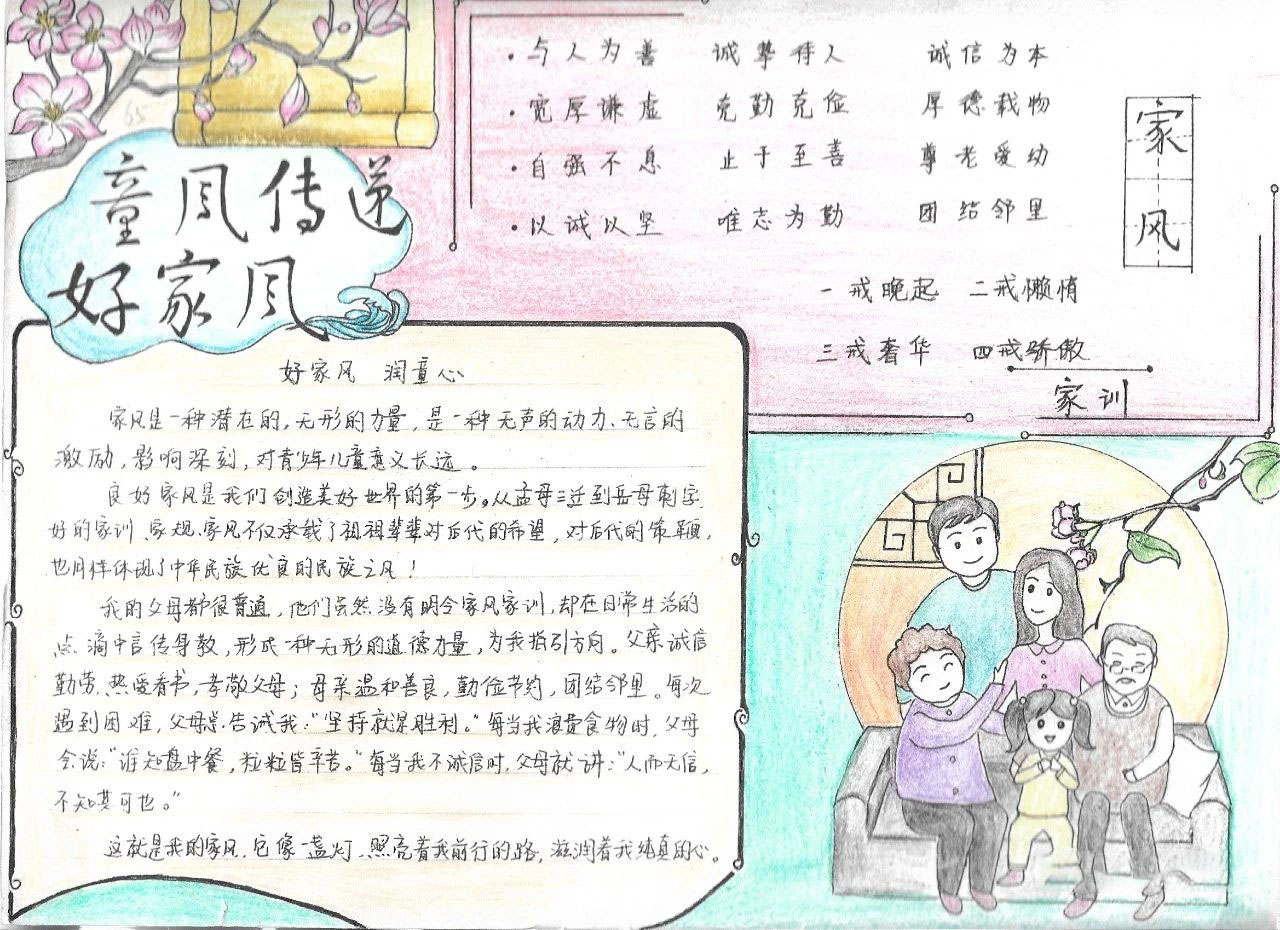 童风传递
好家风
·与人为善 诚挚待人 诚信为本
·宽厚谦虚 克勤克俭 厚德载物
·自强不息 止于至善 尊老爱幼
·以诚以坚 唯志为勤 团结邻里
家风
一戒晚起 二戒懒惰
三戒奢华 四戒骄傲
家训
好家风 润童心
家风是一种潜在的,无形的力量,是一种无声的动力、无言的
激励,影响深刻,对青少年儿童意义长远。
良好家风是我们创造美好世界的第一步。从孟母三迁到岳母刺字,
好的家训、家规、家风不仅承载了祖祖辈辈对后代的希望,对后代的策鞭,
也同样体现了中华民族优良的民族之风!
我的父母都很普通,他们虽然没有明令家风家训,却在日常生活的
点滴中言传身教,形成一种无形的道德力量,为我指引方向。父亲诚信
勤劳、热爱看书,孝敬父母;母亲温和善良,勤俭节约,团结邻里。每次
遇到困难,父母总告诫我:“坚持就是胜利。”每当我浪费食物时,父母
会说:“谁知盘中餐,粒粒皆辛苦。”每当我不诚信时,父母就讲:“人而无信,
不知其可也。”
这就是我的家风,它像一盏灯,照亮着我前行的路,滋润着我纯真的心。